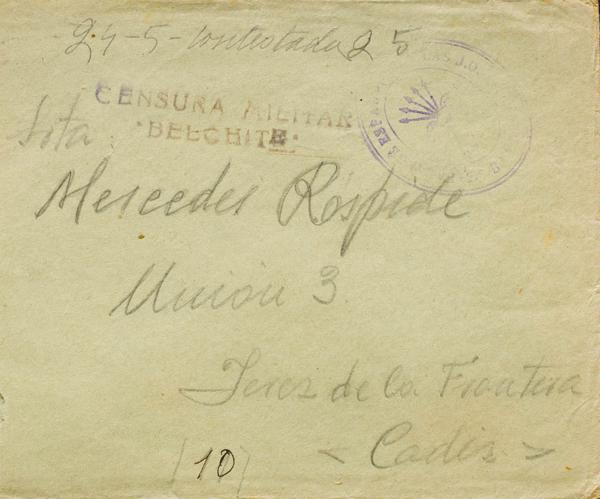 24-5-contestada 25
CENSURA MILITAR
·BELCHITE·
Srta
Mercedes Rospide
Union 3
Jerez de la Frontera
(10)
< Cadiz >